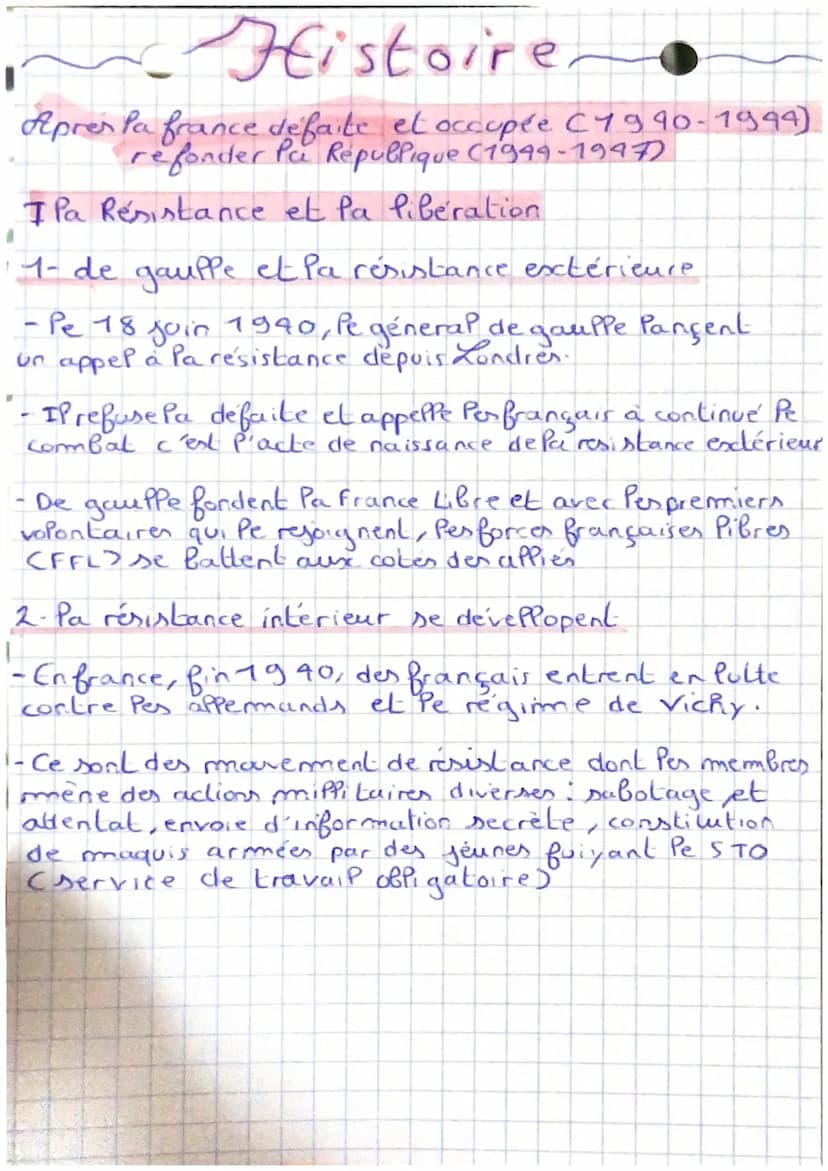 Histoire
Après la france défaite et occupée (1940-1944)
refonder la République (1944-1947)
I la Résistance et la libération
1- de gaulle et la résistance exctérieure
- le 18 juin 1940, le géneral de gaulle lançent
un appel à la résistance depuis Londres.
- Il refuse la défaite et appelle les français à continué le
combat c'est l'acte de naissance de la resistance exctérieur
- De gaulle fondent la france Libre et avec les premmiers
volontaires qui le rejoignent, les forces françaises libres
(FFL) se battent aux cotés des alliés
2- la résistance intérieur se dévellopent
- En france, fin 1940, des français entrent en lutte
contre les allemmands et le régime de Vichy.
- Ce sont des mouvement de résistance dont les membres
mène des actions millitaires diverses : sabotage et
attentat, envoie d'information secrète, constitution
de maquis armées par des jéunes fuiyant le STO
(service de travail obligatoire)